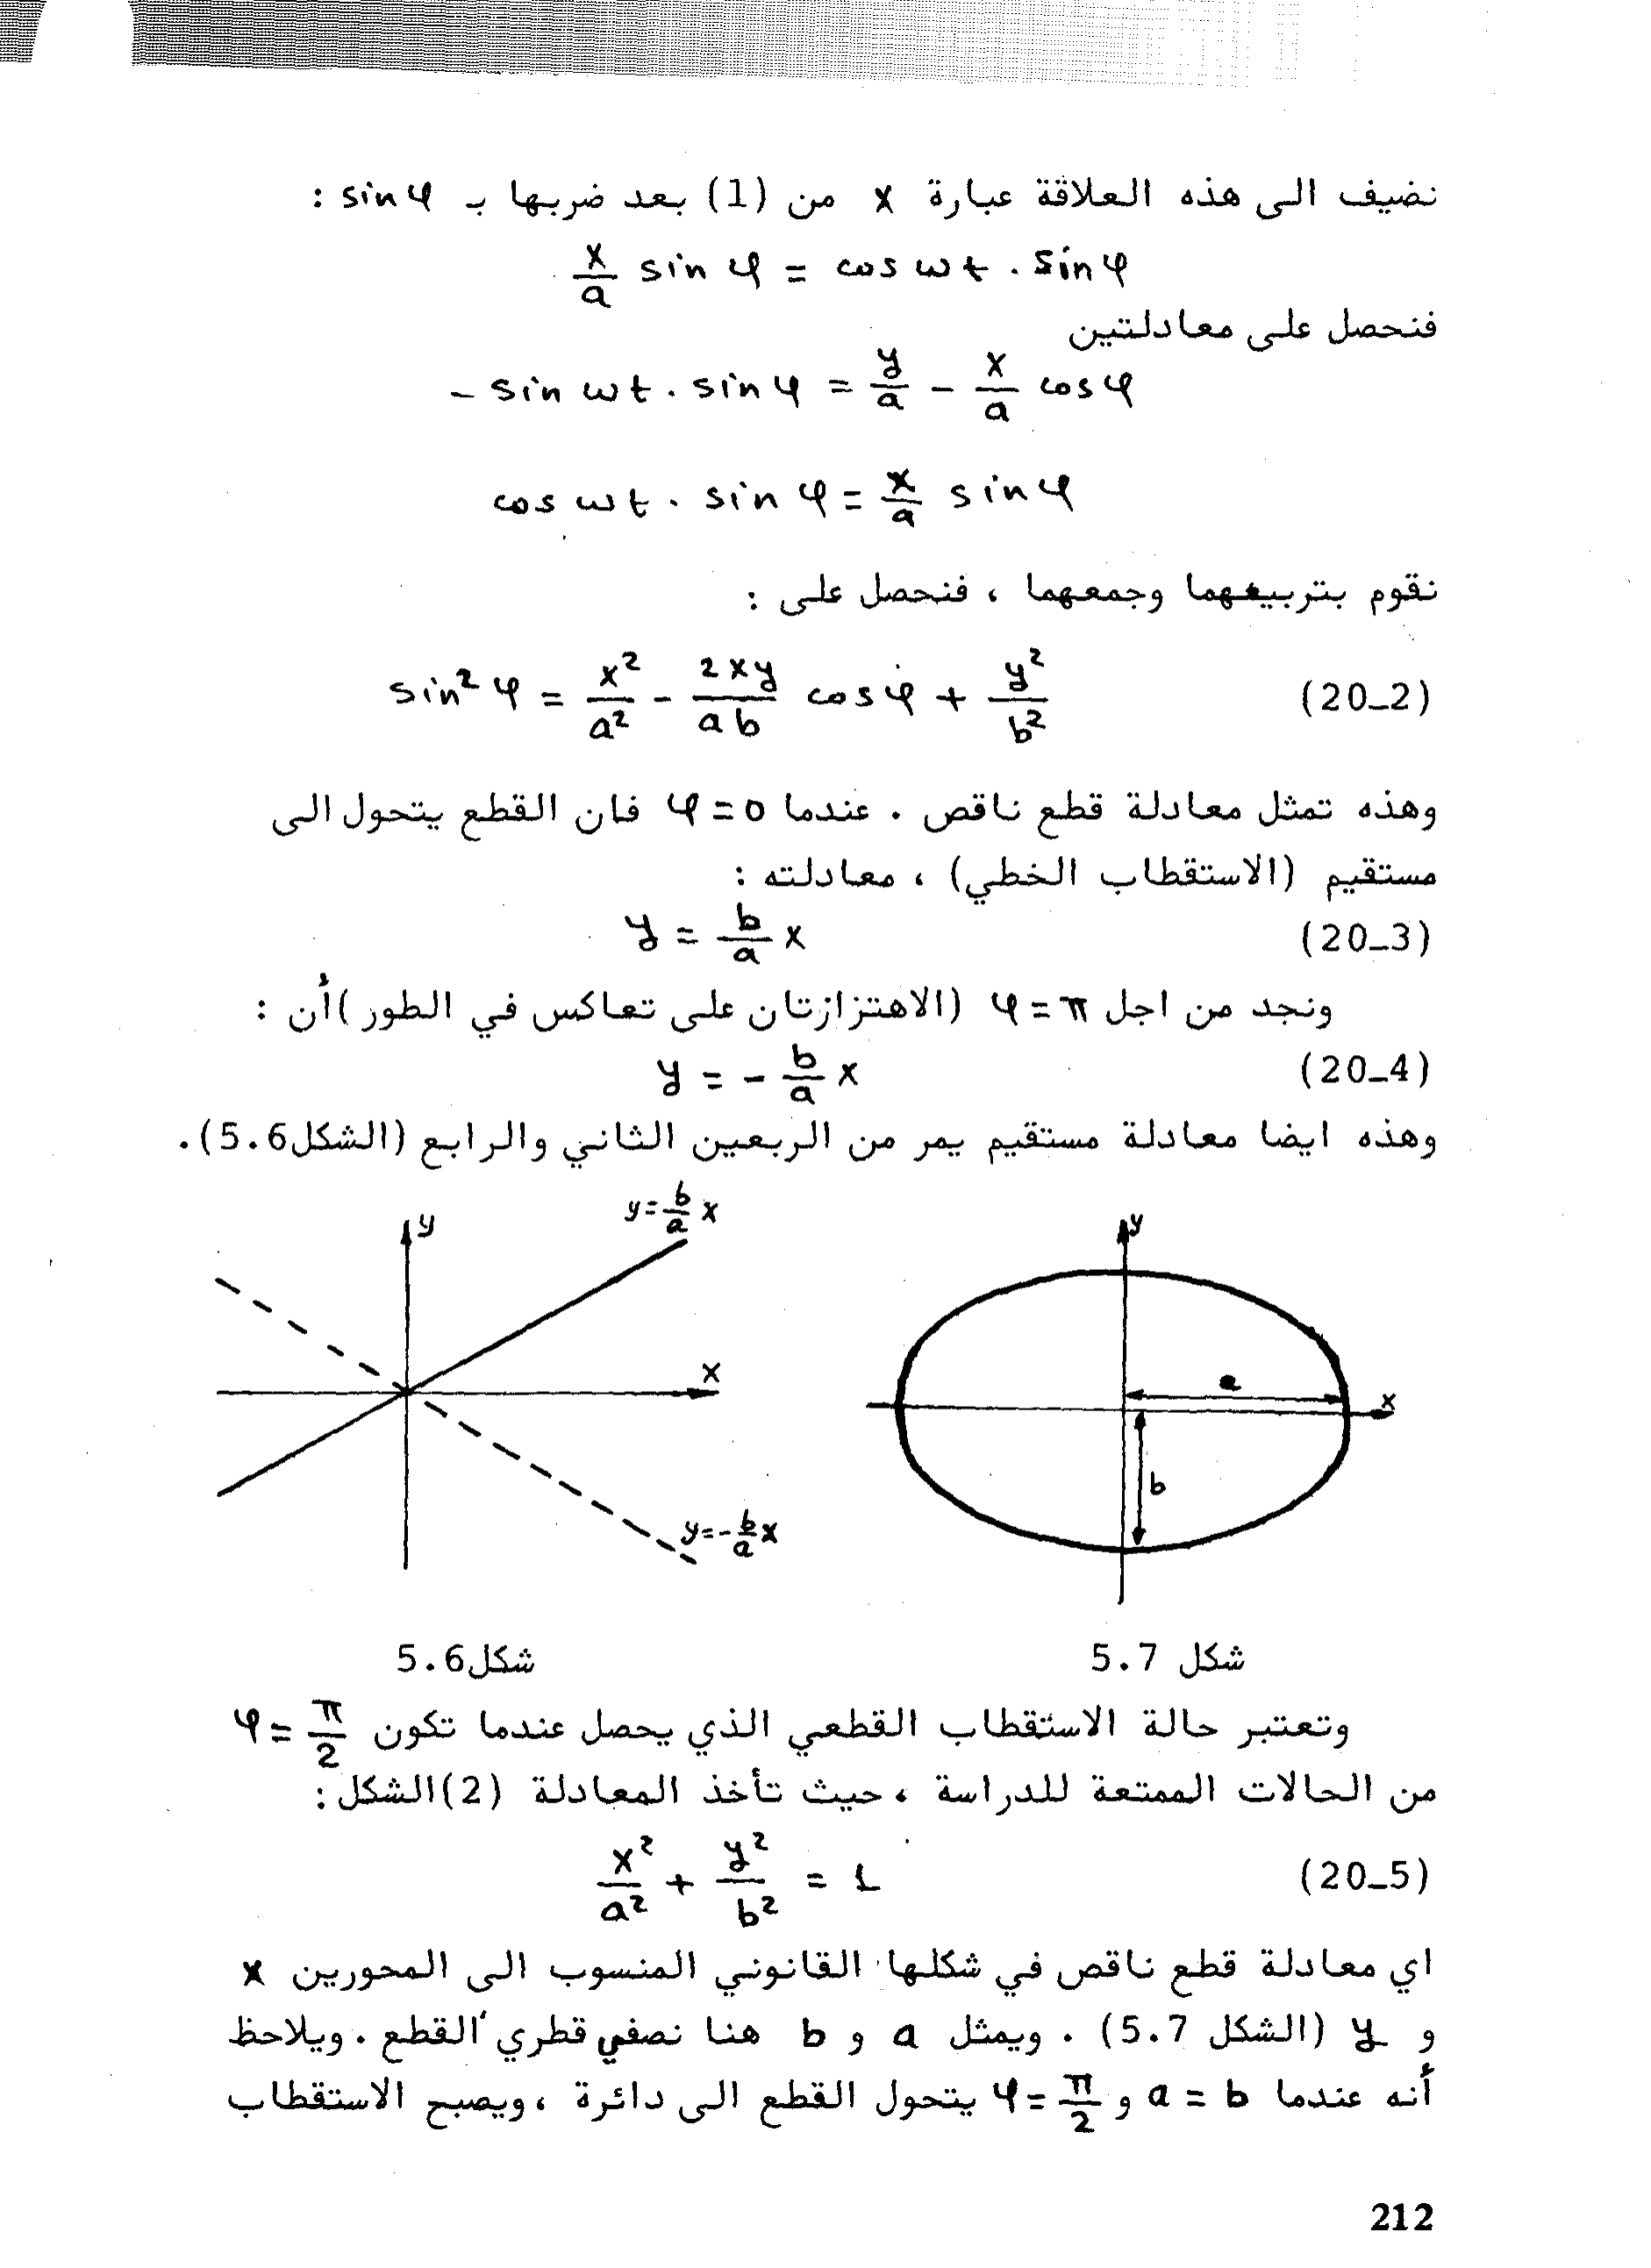 نضيف الى هذه العلاقة عبارة x من (1) بعد ضربها بـ sin φ :
x/a sin φ = cos ωt . sin φ
فنحصل على معادلتين
- sin ωt . sin φ = y/a - x/a cos φ
cos ωt . sin φ = x/a sin φ
نقوم بتربيعهما وجمعهما ، فنحصل على :
sin² φ = x²/a² - 2xy/ab cos φ + y²/b² (20_2)
وهذه تمثل معادلة قطع ناقص . عندما φ = 0 فان القطع يتحول الى
مستقيم (الاستقطاب الخطي) ، معادلته :
y = b/a x (20_3)
ونجد من اجل φ = π (الاهتزازتان على تعاكس في الطور) أن :
y = - b/a x (20_4)
وهذه ايضا معادلة مستقيم يمر من الربعين الثاني والرابع (الشكل5.6).
y
y = b/a x
x
y = - b/a x
y
a
x
b
شكل 5.7
شكل5.6
وتعتبر حالة الاستقطاب القطعي الذي يحصل عندما تكون φ = π/2
من الحالات الممتعة للدراسة ، حيث تأخذ المعادلة (2) الشكل :
x²/a² + y²/b² = 1 (20_5)
اي معادلة قطع ناقص في شكلها القانوني المنسوب الى المحورين x
و y (الشكل 5.7) . ويمثل a و b هنا نصفي قطري القطع . ويلاحظ
أنه عندما a = b و φ = π/2 يتحول القطع الى دائرة ، ويصبح الاستقطاب
212